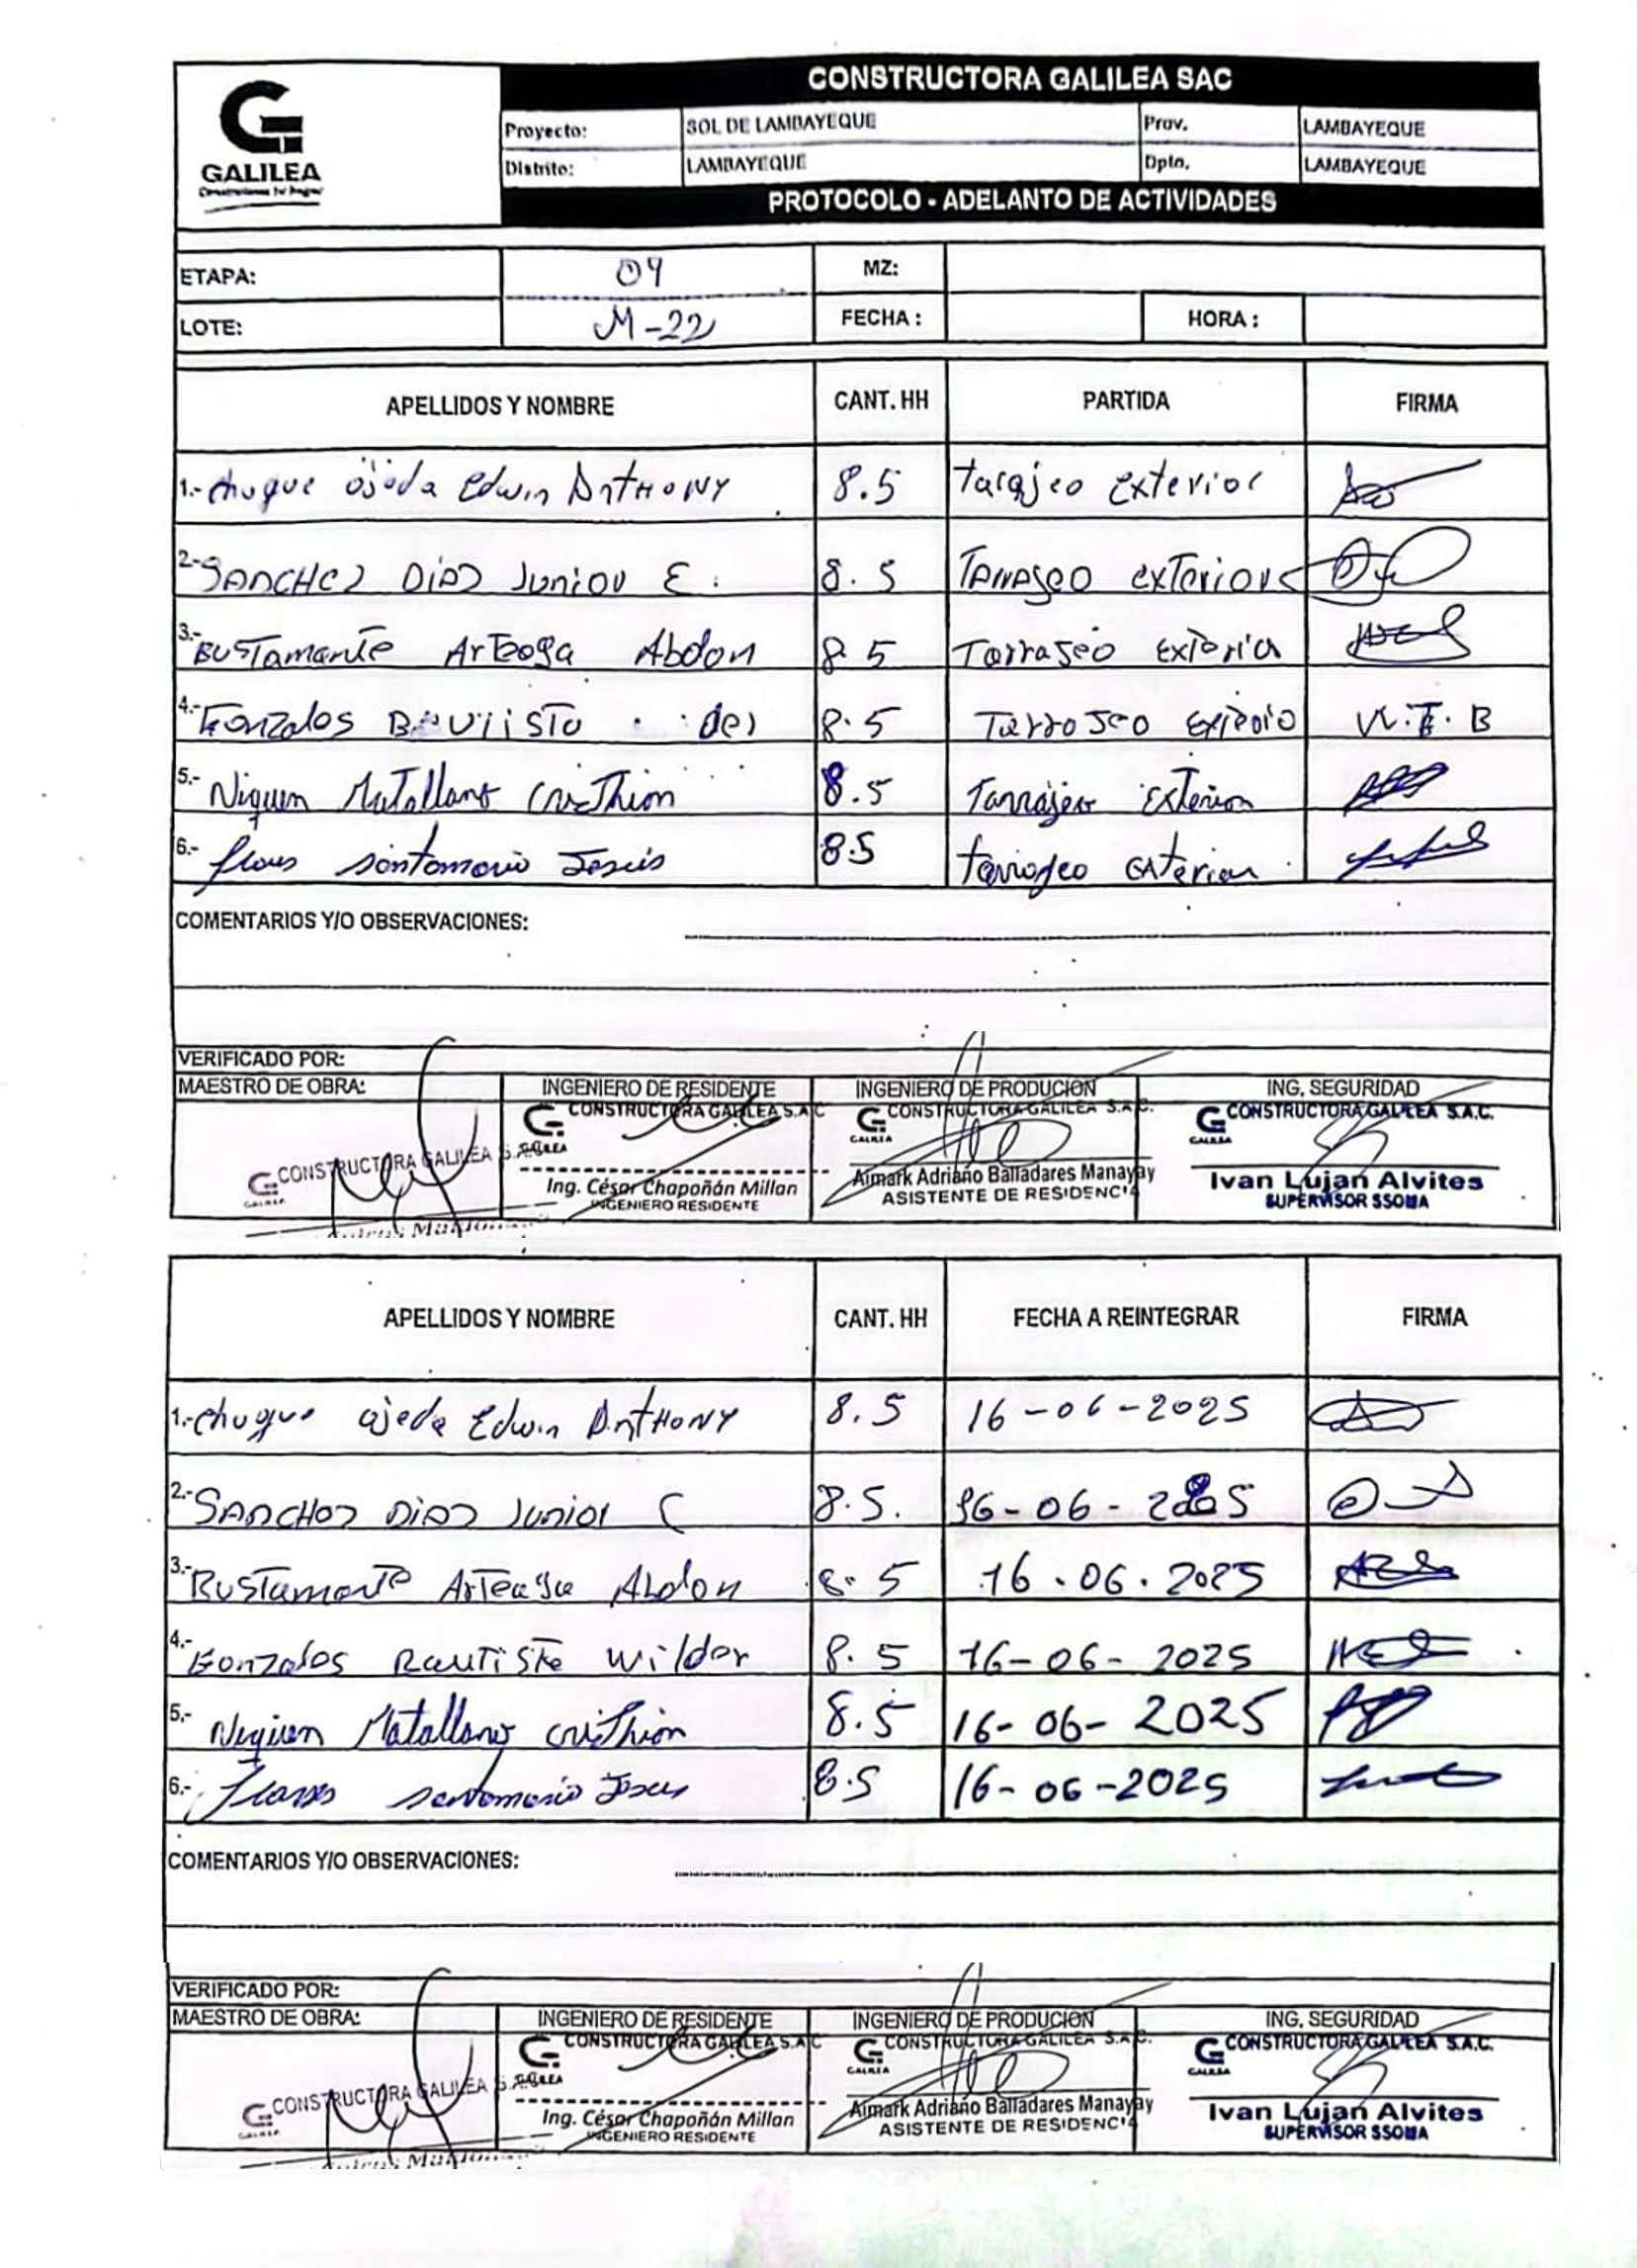 CONSTRUCTORA GALILEA SAC
GALILEA
Proyecto: SOL DE LAMBAYEQUE Prov. LAMBAYEQUE
Distrito: LAMBAYEQUE Dpto. LAMBAYEQUE
PROTOCOLO - ADELANTO DE ACTIVIDADES
ETAPA: 04 MZ:
LOTE: M-22 FECHA : HORA :
APELLIDOS Y NOMBRE CANT. HH PARTIDA FIRMA
1.- chuque ojeda Edwin AnTHONY 8.5 tarajeo exterior
2.- SANCHEZ DIAZ Junior E. 8.5 exterior
3.- BUSTamante Arteaga Abdon 8.5 Tarraseo
4.- Gonzales 8.5 W.E.B
5.- Niquen Matallano Cristhian 8.5 Tarrajeo Exterior
6.- flores santamaria Jesús 8.5 tarrajeo exterior
COMENTARIOS Y/O OBSERVACIONES:
VERIFICADO POR:
MAESTRO DE OBRA: INGENIERO DE RESIDENTE INGENIERO DE PRODUCION ING. SEGURIDAD
CONSTRUCTORA GALILEA CONSTRUCTORA GALILEA S.A.C CONSTRUCTORA GALILEA S.A.C. CONSTRUCTORA GALILEA S.A.C.
Ing. César Chapoñán Millan Aimark Adriano Balladares Manayay Ivan Lujan Alvites
INGENIERO RESIDENTE ASISTENTE DE RESIDENCIA SUPERVISOR SSOMA
APELLIDOS Y NOMBRE CANT. HH FECHA A REINTEGRAR FIRMA
1.- chuque ojeda Edwin AnTHONY 8.5 16-06-2025
2.- SANCHEZ DIAZ Junior 8.5. 16-06-2025
3.- BUSTamante Arteaga Abdon 8.5 16.06.2025
4.- Gonzales Bautista Wilder 8.5 16-06-2025
5.- Niquen Matallano Cristhian 8.5 16-06-2025
6.- flores santamaria Jesus 8.5 16-06-2025
COMENTARIOS Y/O OBSERVACIONES:
VERIFICADO POR:
MAESTRO DE OBRA: INGENIERO DE RESIDENTE INGENIERO DE PRODUCION ING. SEGURIDAD
CONSTRUCTORA GALILEA CONSTRUCTORA GALILEA S.A.C CONSTRUCTORA GALILEA S.A.C. CONSTRUCTORA GALILEA S.A.C.
Ing. César Chapoñán Millan Aimark Adriano Balladares Manayay Ivan Lujan Alvites
INGENIERO RESIDENTE ASISTENTE DE RESIDENCIA SUPERVISOR SSOMA